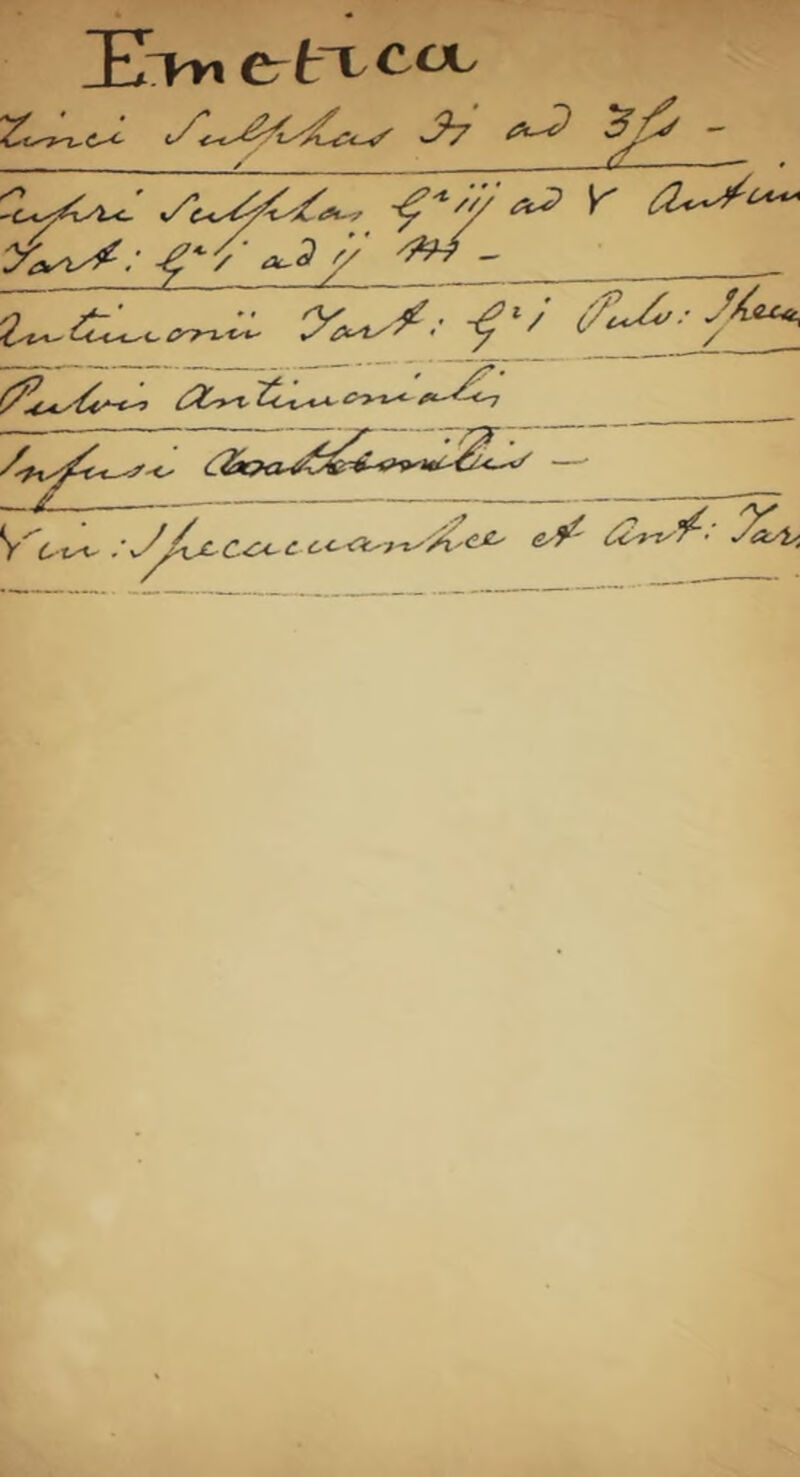 Emetica
Zinci Sulphas ℈i ad ʒſs -
Cupri Sulphas gr iij ad V Antim
Tart: gr i ad ij M -
Antimonii Tart: gr i Pulv: Ipeca
Pulvis Antimonialis
Infusi Anthemidis —
Vin: Ipecacuanhae et Ant: Tar